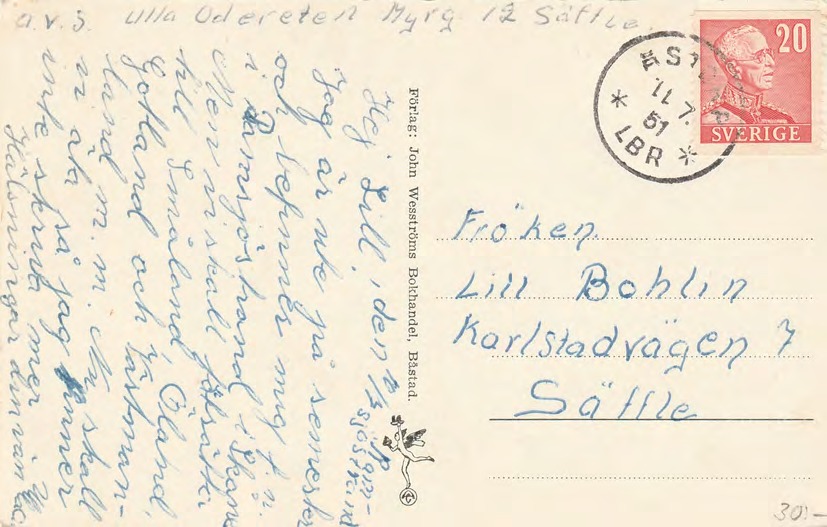 a.v.s. Ulla Odereten Myrg. 12 Säffle.
20
SVERIGE
11.7.
51
LBR
Hej Lill! den 11/7
Jag är ute på semester
och befinner mig f.n.
i Ramsjöstrand i Skåne
Men vi skall fortsätta
till Småland, Öland,
Gotland och Västman-
land m.m. Nu skall
vi äta så jag hinner
inte skriva mer
Hälsningar din vän
Förlag: John Wesströms Bokhandel, Båstad.
Fröken.
Lill Bohlin
Karlstadvägen 7
Säffle
30:-